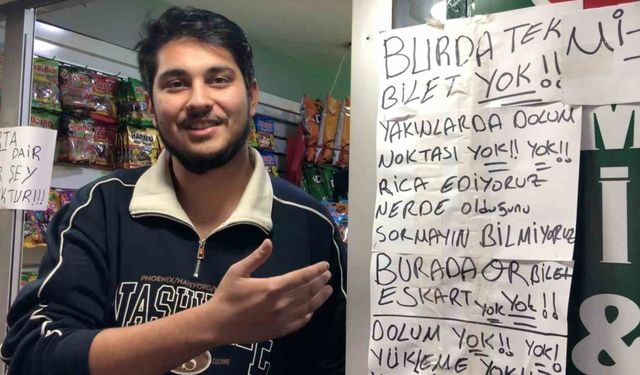 BURDA TEK
BİLET YOK!!
Mİ-
YAKINLARDA DOLUM
NOKTASI YOK!! YOK!!
RİCA EDİYORUZ
NERDE olduğunu
SORMAYIN BİLMİYORUZ
BURADA
ESKART YOK YOK!!
DOLUM YOK!! YOK!
YÜKLEME YOK!
DAİR
ŞEY
KTUR!!!
M
İ
&
PHOENIX/HARTFORD/
NASHV
CULTURE
HARIBO